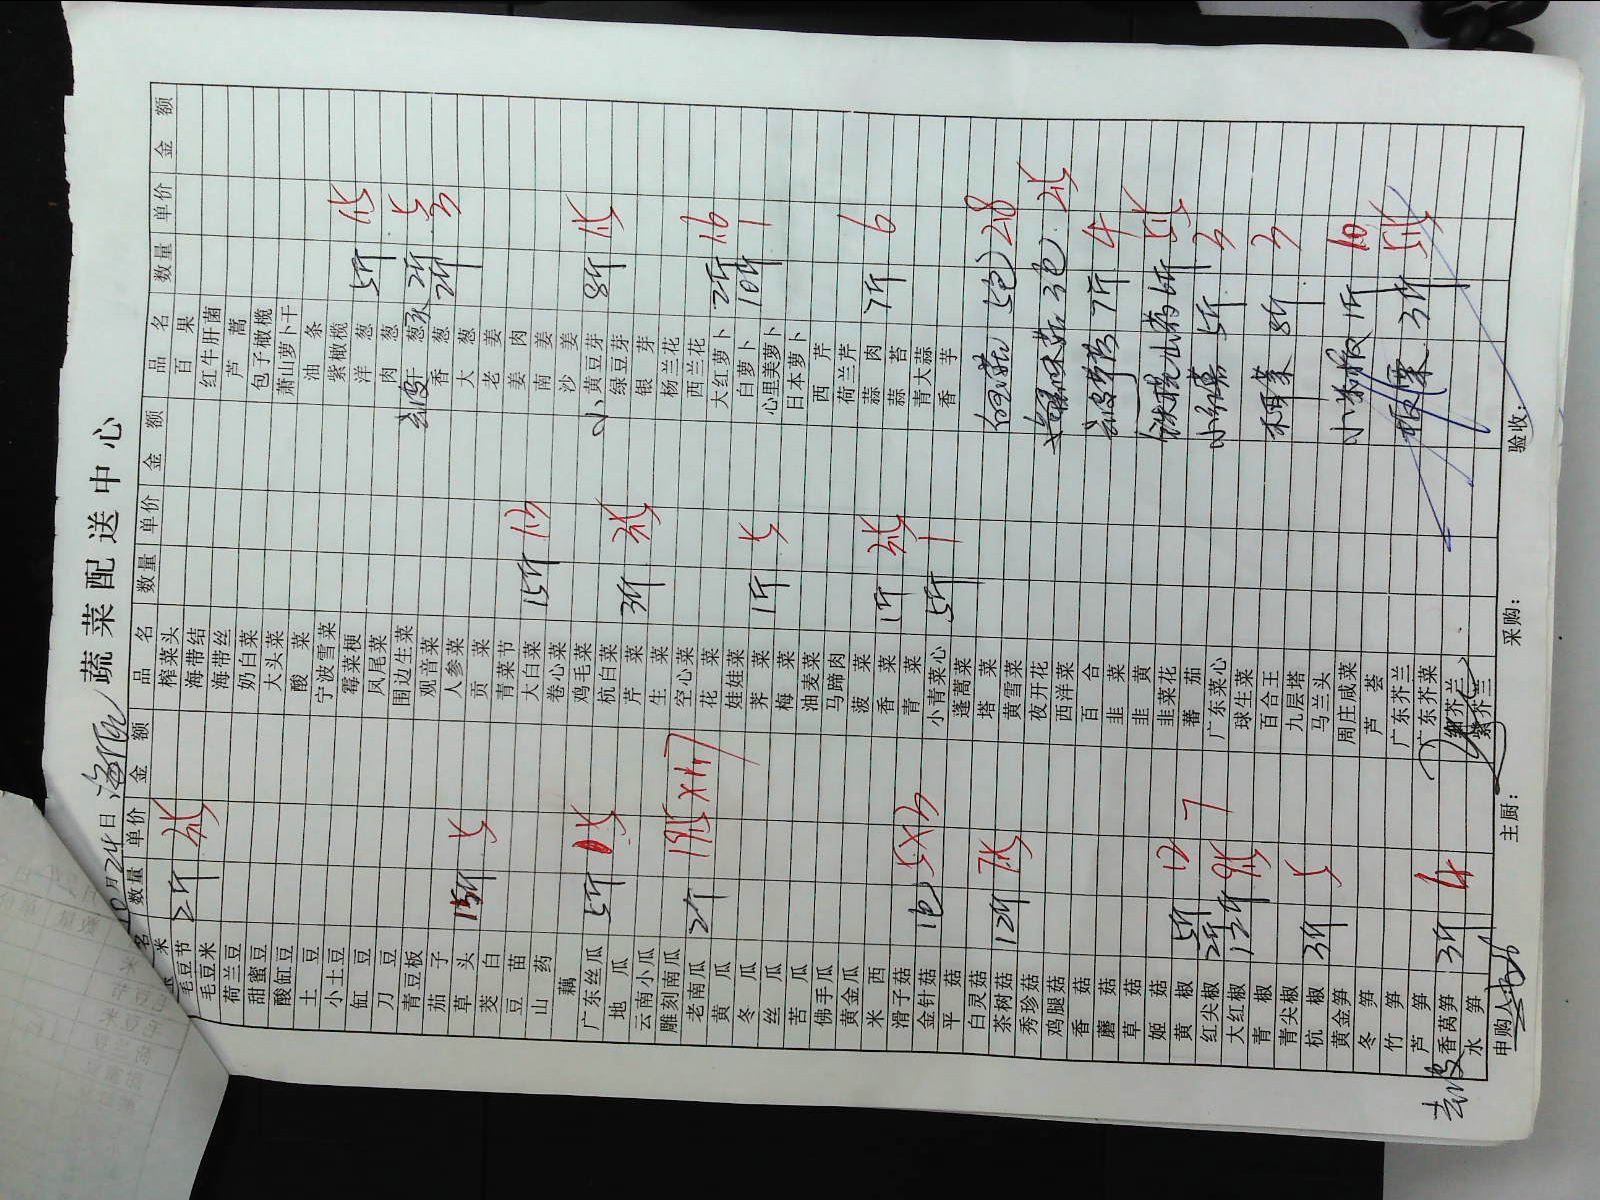 10月24日 海阳 蔬菜配送中心
品名 数量 单价 金额 品名 数量 单价 金额 品名 数量 单价 金额
毛豆节 2斤 3.5
毛豆米
荷兰豆
甜蜜豆
酸缸豆
土豆
小土豆
缸豆
刀豆
青豆板
茄子
草头 15斤 5
茭白
豆苗
山药
藕
广东丝瓜 5斤 1.5
地瓜
云南小瓜
雕刻南瓜
老南瓜 2斤
黄瓜
冬瓜
丝瓜
苦瓜
佛手瓜
黄金瓜
米西
滑子菇
金针菇 1包 5×3
平菇
白灵菇
茶树菇 12斤 7.5
秀珍菇
鸡腿菇
香菇
蘑菇
草菇
姬菇
黄椒 5斤 12
红尖椒 2斤 7
大红椒 12斤 9.5
青椒
青尖椒
杭椒 3斤 5
黄金笋
冬笋
竹笋
芦笋
去皮 香莴笋 3斤 4
水笋
榨菜头
海带结
海带丝
奶白菜
大头菜
酸菜
宁波雪菜
霉菜梗
凤尾菜
围边生菜
观音菜
人参菜
贡菜
青菜节
大白菜 15斤 1.3
卷心菜
鸡毛菜
杭白菜
芹菜 3斤 3.5
生菜
空心菜
花菜
娃娃菜
荠菜 1斤 5
梅菜
油麦菜
马蹄肉
菠菜
香菜 1斤 3.5
青菜
小青菜心 5斤 1
蓬蒿菜
塔菜
黄雪菜
夜开花
西洋菜
百合
韭菜
韭黄
韭菜花
蕃茄
广东菜心
球生菜
百合王
九层塔
马兰头
周庄咸菜
芦荟
广东芥兰
广东芥菜
紫芥兰
百果
红牛肝菌
芦蒿
包子橄榄
萧山萝卜干
油条
紫橄榄
洋葱 5斤 1.5
肉葱
去皮 干葱 2斤 5
香葱 2斤 3
大葱
老姜
姜肉
南姜
沙姜
小 黄豆芽 8斤 1.5
绿豆芽
银芽
杨兰花
西兰花
大红萝卜 2斤 1.6
白萝卜 10斤 1
心里美萝卜
日本萝卜
西芹
荷兰芹
蒜肉 7斤 6
蒜苔
青大蒜
香芋
白玉菇 5包 2.8
海鲜菇 3包 2.5
去皮芋艿 7斤 4
铁棍山药 6斤 5.5
5斤 3
木耳菜 8斤 3
小米椒 1斤 10
板栗 3斤 5.5
申购人: 主厨: 采购: 验收: